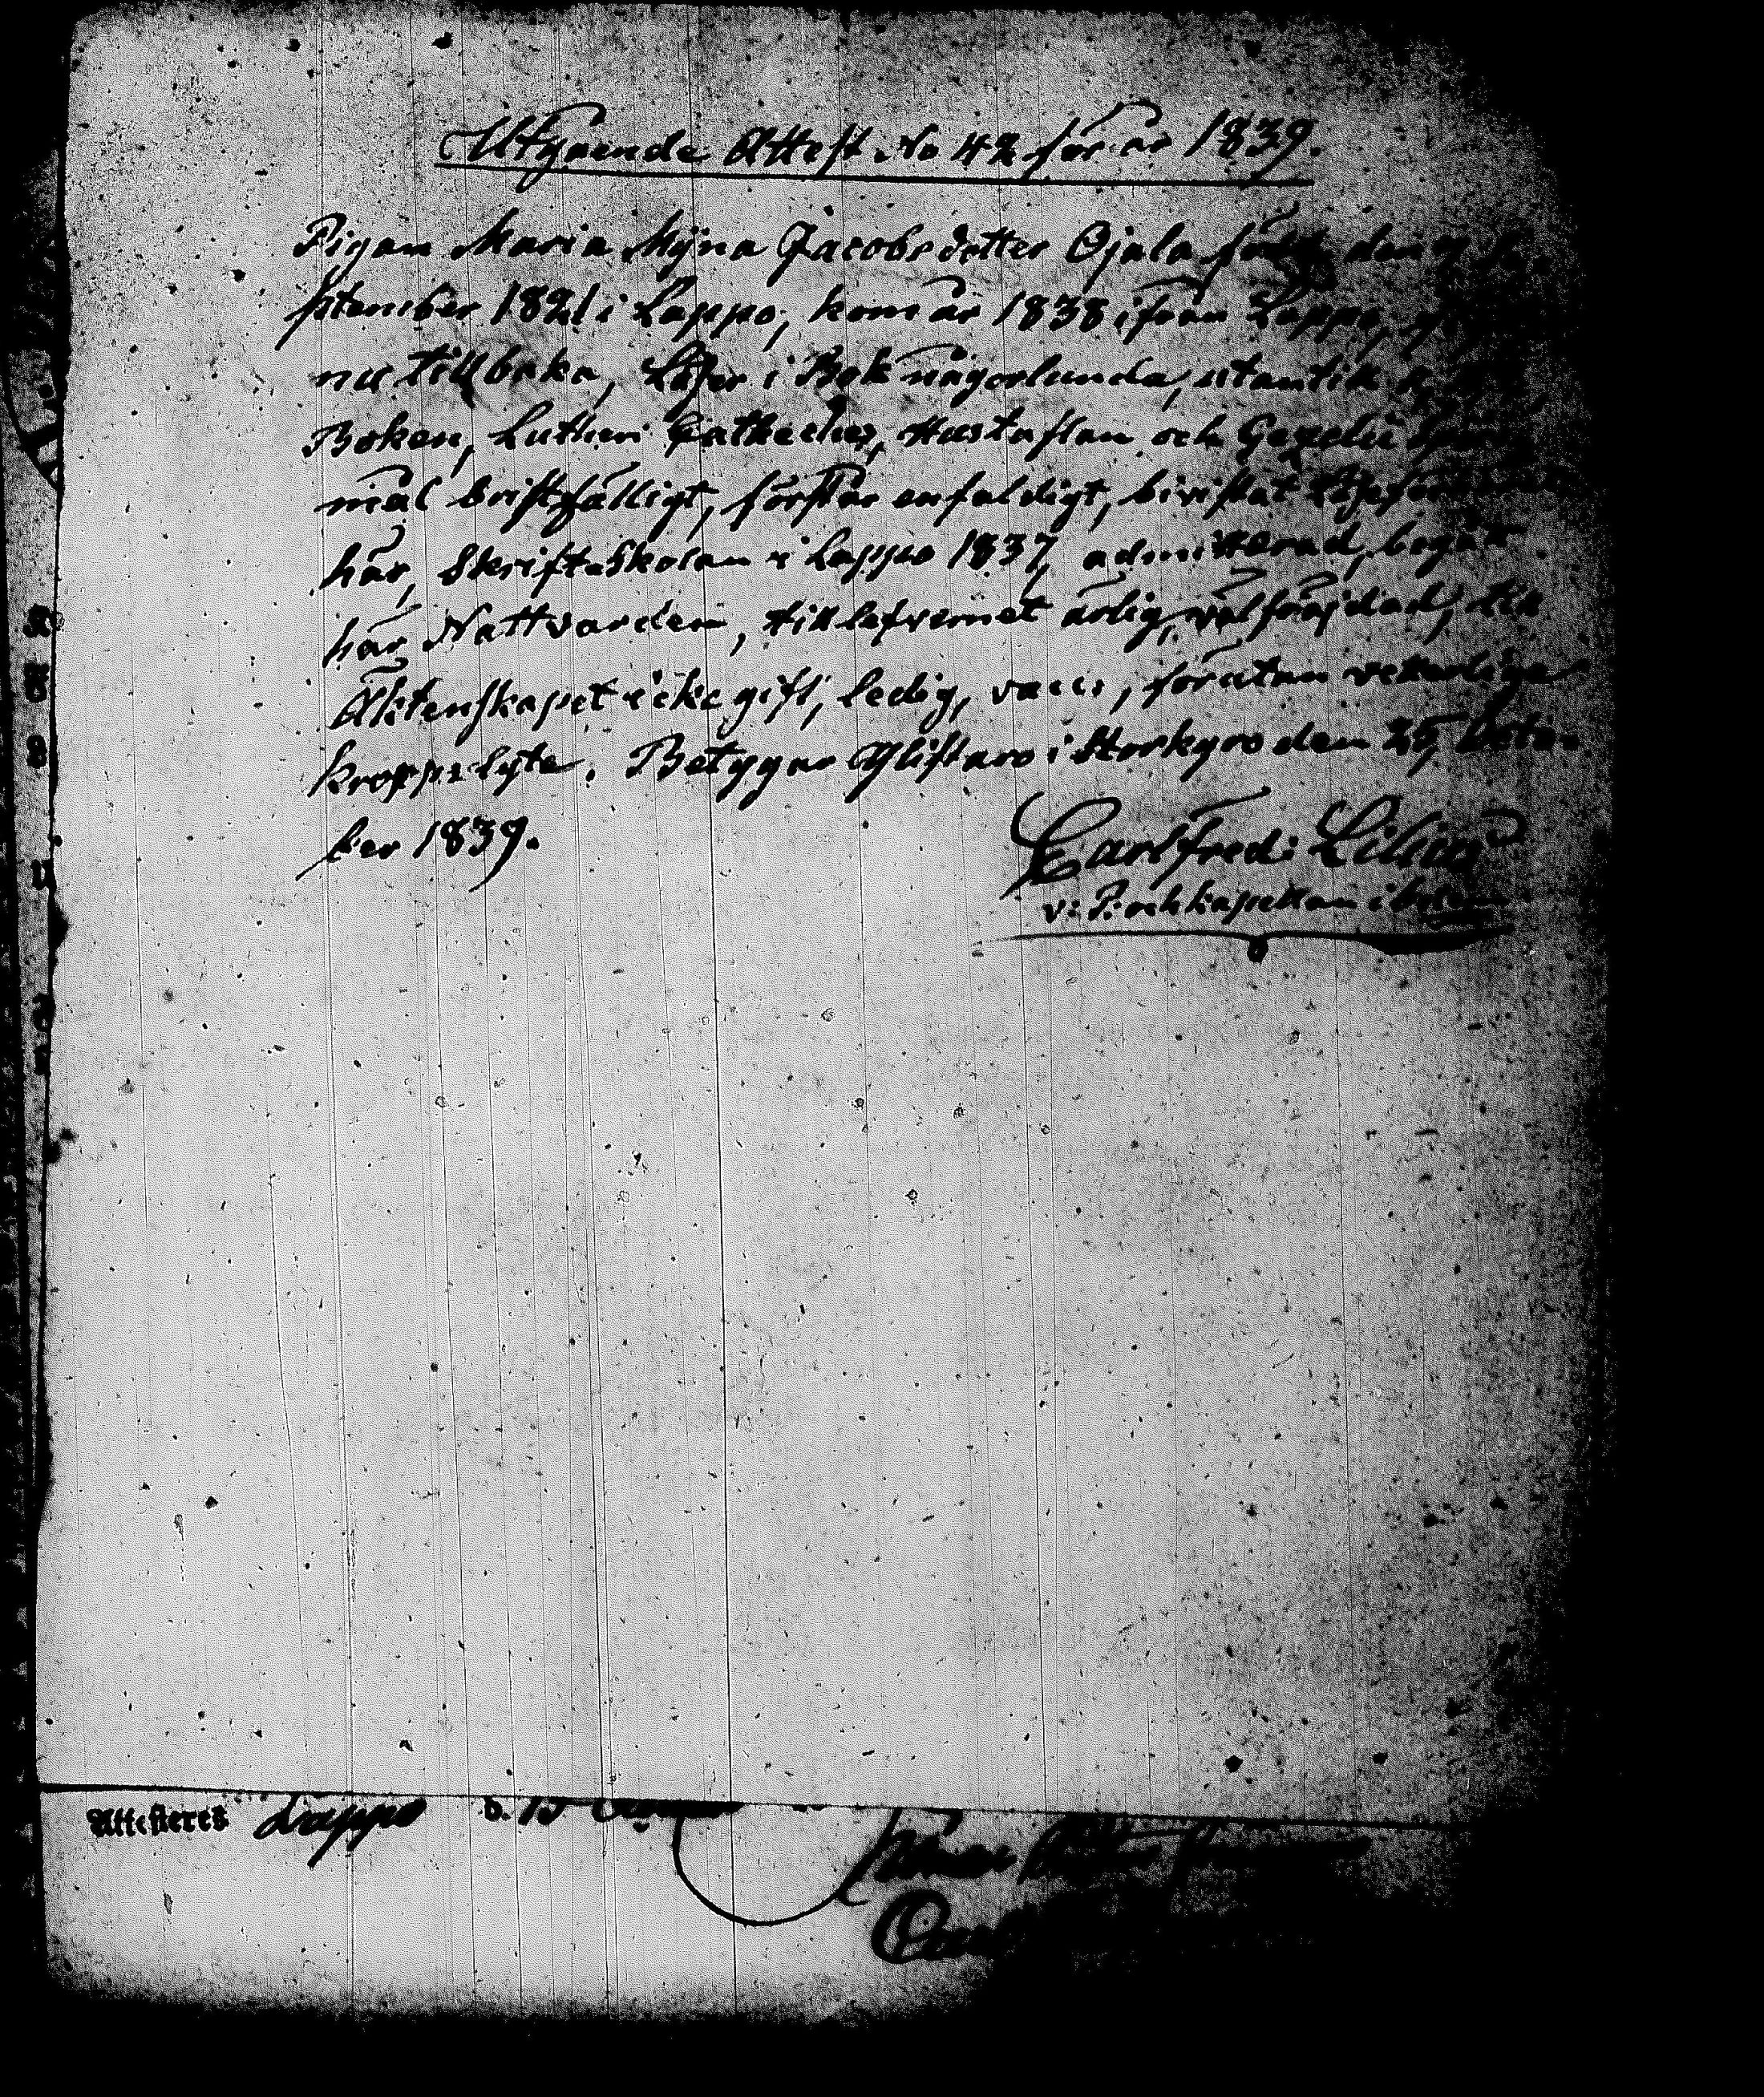 Utgående Attest No 42 för år 1839.
Pigan Maria Mÿna Jacobsdotter Ojala född den 7 Se-
ptember 1821 i Lappo, kom år 1838 ifrån Lappo,
nu tillbaka, Läser i Bok någorlunda, utantill
Boken, Lutheri Catheches, Hustaflan och Gezelii Spörs-
mål bristfälligt, förstår enfaldigt, bivistat Läseförhören
här, Skriftskolan i Lappo 1837, admitterad, begått
här Nattvarden, till lefvernet ärlig, välfräjdad, till
Äktenskapet icke gift, ledig, vacc:, förutan veterligen
kroppslyte. Betygar Ylistaro i Storkyro den 25 Octo-
ber 1839.
Carl Fred: Lilius
v: P. och kapellan ibidem
Attesteres Lappo d. 15